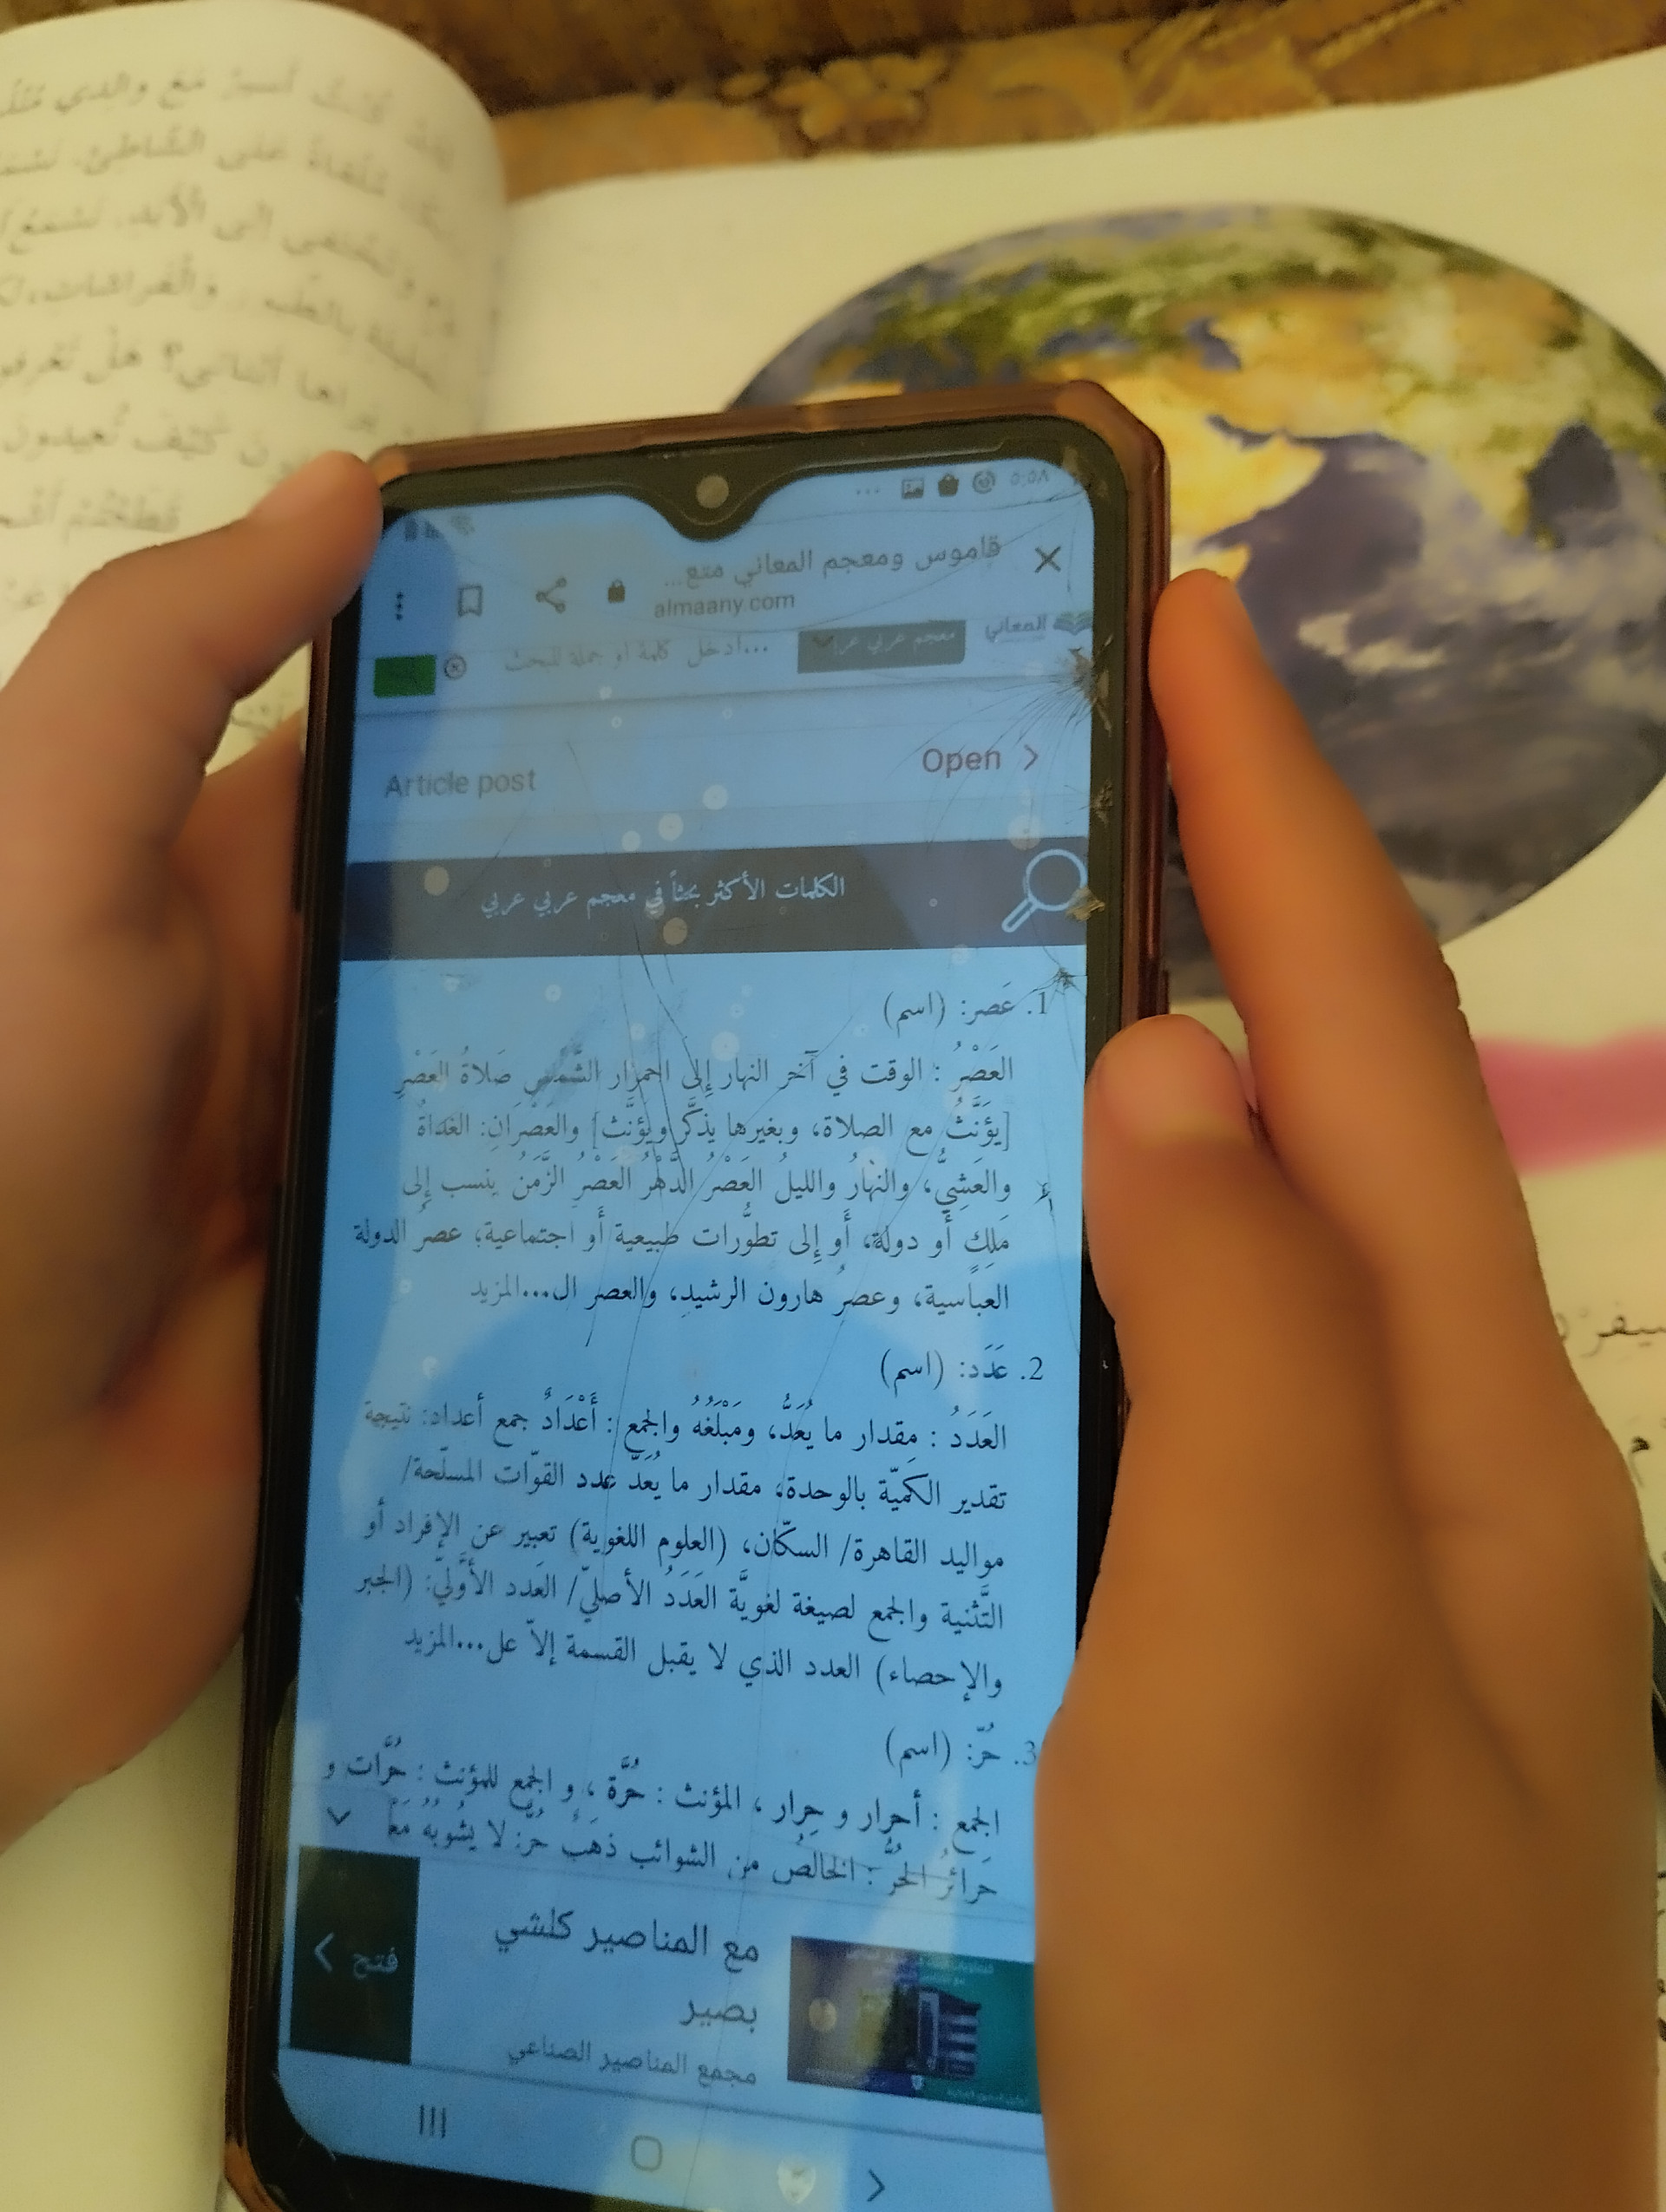 كُنْتُ أَسيرُ مَعَ والِدي
مُلْقاةً عَلى الشّاطِئِ.
وتَخْتَفي إلى الأَبَدِ.
والفَراشاتِ
هَلْ
كَيْفَ تُعيدونَ
٥:٥٨
قاموس ومعجم المعاني متع...
almaany.com
المعاني
معجم عربي عر
ادخل كلمة او جملة للبحث...
Article post
Open
الكلمات الأكثر بحثاً في معجم عربي عربي
1. عَصر: (اسم)
العَصْرُ : الوقت في آخر النهار إِلى احمرار الشَّمس صَلاةُ العَصْرِ
[يؤَنَّثُ مع الصلاة، وبغيرها يذكَّر ويؤنَّث] والعَصْرَانِ: الغداةُ
والعَشِيُّ، والنهارُ والليلُ العَصْرُ الدَّهْرُ العَصْرُ الزَّمَنُ ينسب إِلى
مَلِكٍ أَو دولة، أَو إِلى تطوُّرات طبيعية أَو اجتماعية؛ عصرُ الدولة
العباسية، وعصرُ هارون الرشيد، والعصر ال...المزيد
2. عَدَد: (اسم)
العَدَدُ : مِقدار ما يُعَدُّ، ومَبْلَغُهُ والجمع : أَعْدَادٌ جمع أعداد: نتيجة
تقدير الكميّة بالوحدة، مقدار ما يُعَدّ عدد القوّات المسلّحة/
مواليد القاهرة/ السكّان، (العلوم اللغوية) تعبير عن الإفراد أو
التَّثنية والجمع لصيغة لغويَّة العَدَدُ الأصليّ/ العَدد الأَوَّليّ: (الجبر
والإحصاء) العدد الذي لا يقبل القسمة إلاّ عل...المزيد
3. حُرّ: (اسم)
الجمع : أحرار و حِرار ، المؤنث : حُرَّة ، و الجمع للمؤنث : حُرَّات و
حَرائرُ الحُرُّ : الخالصُ من الشوائب ذهَبٌ حُرٌّ: لا يشُوبُهُ مَع
مع المناصير كلشي
بصير
مجمع المناصير الصناعي
فتح